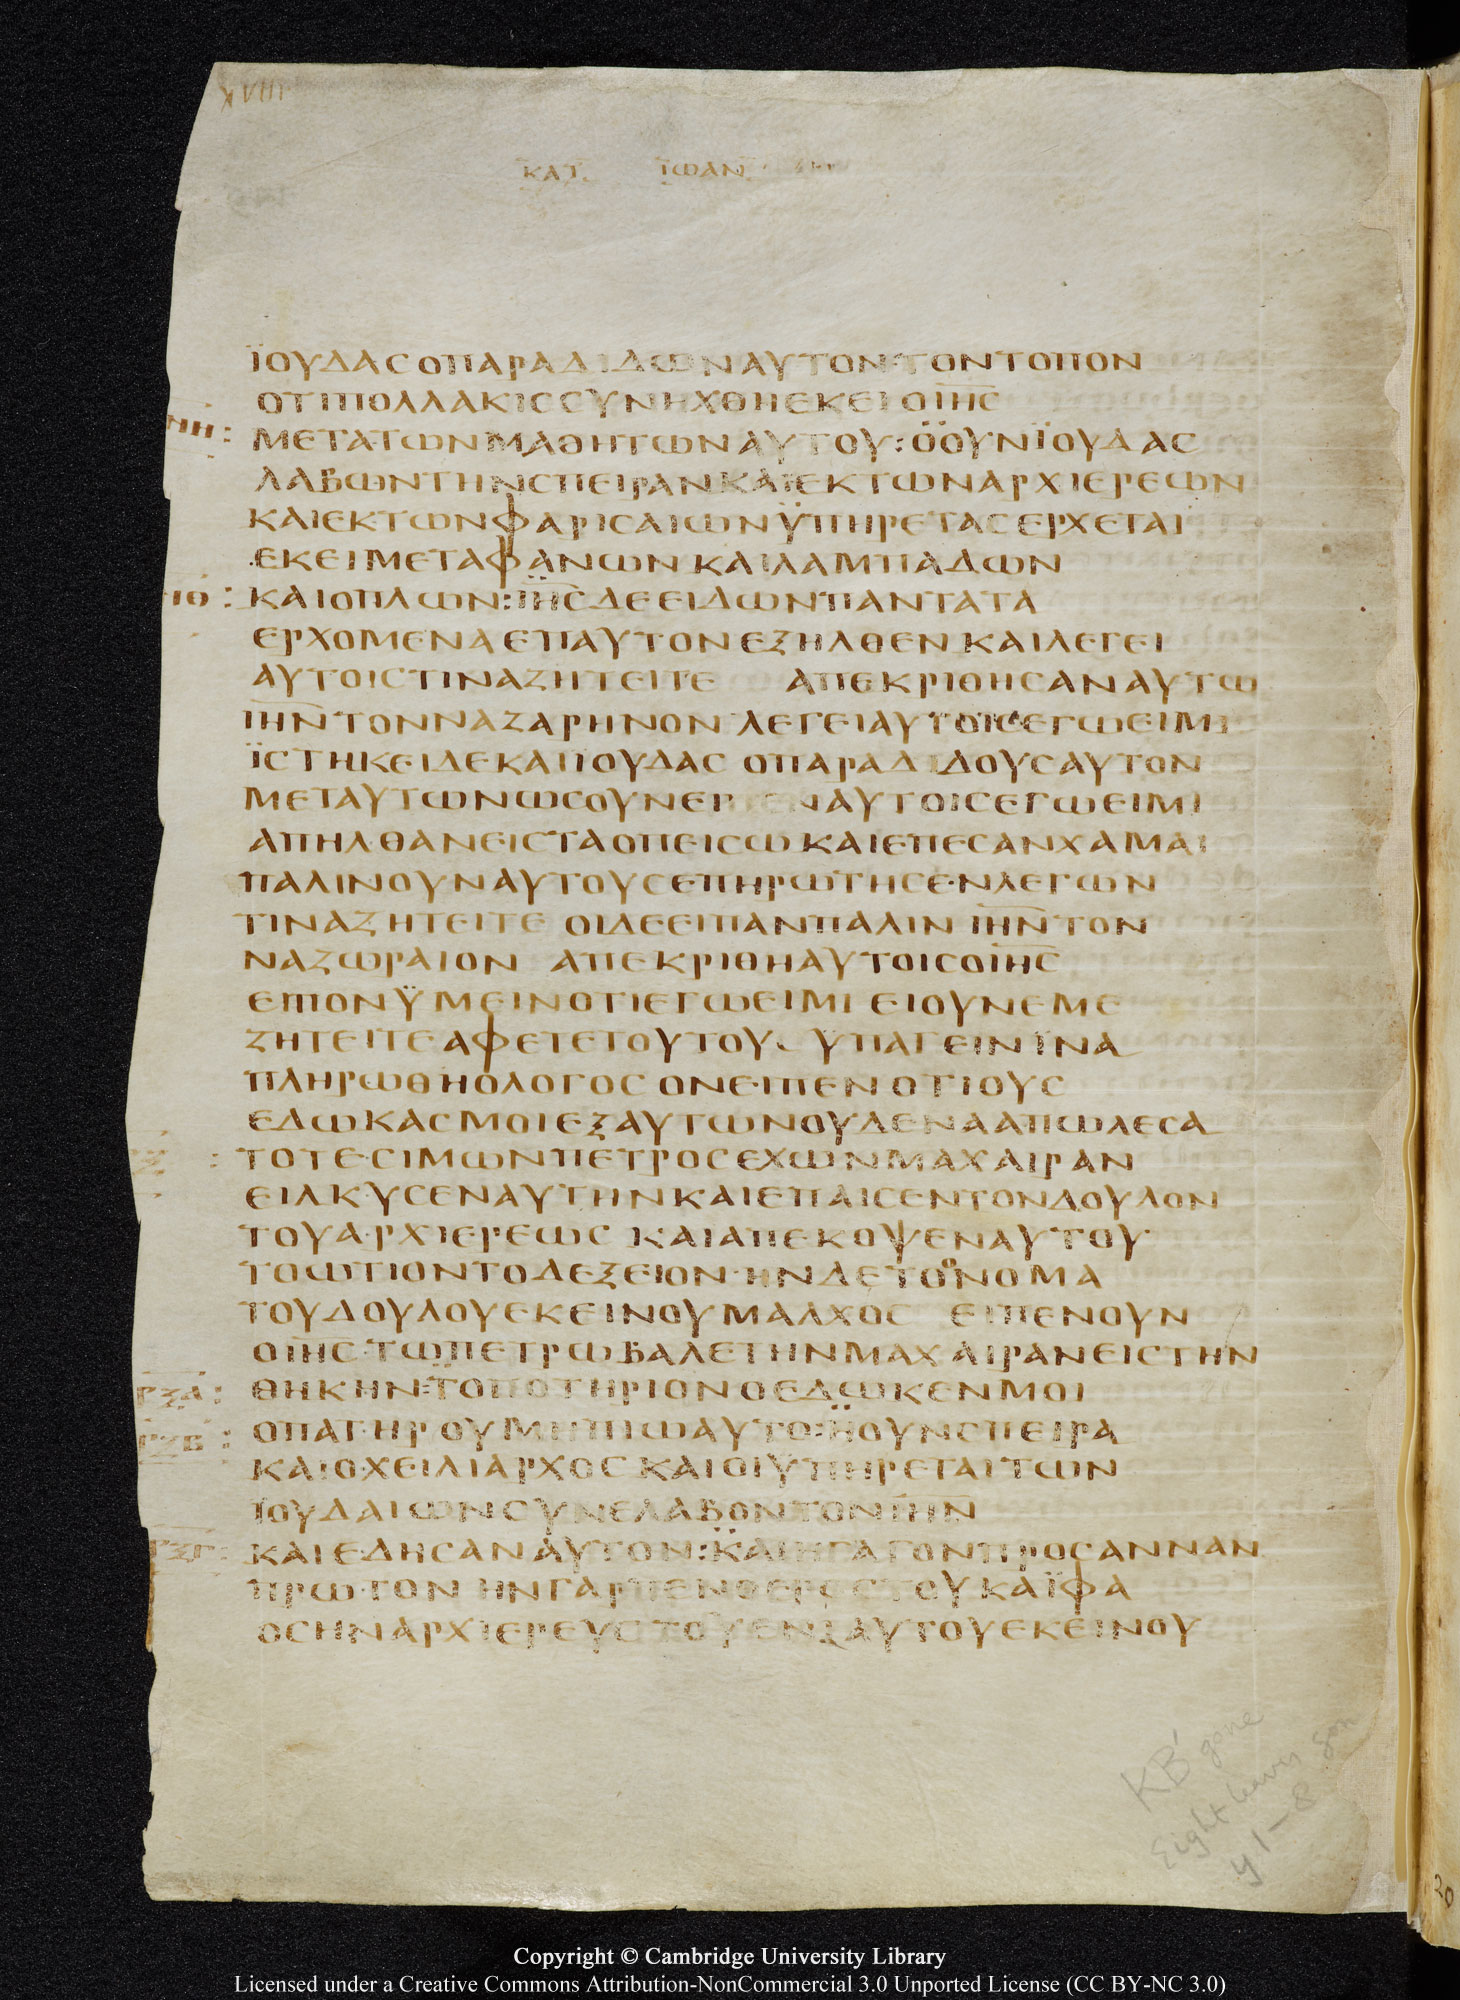 XVIII
ΚΑΤ ΙΩΑΝ
ΪΟΥΔΑС ΟΠΑΡΑΔΙΔΩΝ ΑΥΤΟΝ ΤΟΝ ΤΟΠΟΝ
ΟΤΙ ΠΟΛΛΑΚΙС СΥΝΗΧΘΗ ΕΚΕΙ Ο ΙΗС
ΜΕΤΑ ΤΩΝ ΜΑΘΗΤΩΝ ΑΥΤΟΥ: Ο ΟΥΝ ΪΟΥΔΑС
ΛΑΒΩΝ ΤΗΝ СΠΕΙΡΑΝ ΚΑΙ ΕΚ ΤΩΝ ΑΡΧΙΕΡΕΩΝ
ΚΑΙ ΕΚ ΤΩΝ ΦΑΡΙСΑΙΩΝ ΫΠΗΡΕΤΑС ΕΡΧΕΤΑΙ
ΕΚΕΙ ΜΕΤΑ ΦΑΝΩΝ ΚΑΙ ΛΑΜΠΑΔΩΝ
ΚΑΙ ΟΠΛΩΝ: ΙΗС ΔΕ ΕΙΔΩΝ ΠΑΝΤΑ ΤΑ
ΕΡΧΟΜΕΝΑ ΕΠ ΑΥΤΟΝ ΕΞΗΛΘΕΝ ΚΑΙ ΛΕΓΕΙ
ΑΥΤΟΙС ΤΙΝΑ ΖΗΤΕΙΤΕ ΑΠΕΚΡΙΘΗСΑΝ ΑΥΤΩ
ΙΗΝ ΤΟΝ ΝΑΖΑΡΗΝΟΝ ΛΕΓΕΙ ΑΥΤΟΙС ΕΓΩ ΕΙΜΙ
ΪСΤΗΚΕΙ ΔΕ ΚΑΙ ΙΟΥΔΑС Ο ΠΑΡΑΔΙΔΟΥС ΑΥΤΟΝ
ΜΕΤ ΑΥΤΩΝ ΩС ΟΥΝ ΑΥΤΟΙС ΕΓΩ ΕΙΜΙ
ΑΠΗΛΘΑΝ ΕΙС ΤΑ ΟΠΕΙСΩ ΚΑΙ ΕΠΕСΑΝ ΧΑΜΑΙ
ΠΑΛΙΝ ΟΥΝ ΑΥΤΟΥС ΕΠΗΡΩΤΗСΕΝ ΛΕΓΩΝ
ΤΙΝΑ ΖΗΤΕΙΤΕ ΟΙ ΔΕ ΕΙΠΑΝ ΠΑΛΙΝ ΙΗΝ ΤΟΝ
ΝΑΖΩΡΑΙΟΝ ΑΠΕΚΡΙΘΗ ΑΥΤΟΙС Ο ΙΗС
ΕΙΠΟΝ ΫΜΕΙΝ ΟΤΙ ΕΓΩ ΕΙΜΙ ΕΙ ΟΥΝ ΕΜΕ
ΖΗΤΕΙΤΕ ΑΦΕΤΕ ΤΟΥΤΟΥС ΫΠΑΓΕΙΝ ΪΝΑ
ΠΛΗΡΩΘΗ Ο ΛΟΓΟС ΟΝ ΕΙΠΕΝ ΟΤΙ ΟΥС
ΕΔΩΚΑС ΜΟΙ ΕΞ ΑΥΤΩΝ ΟΥΔΕΝΑ ΑΠΩΛΕСΑ
ΤΟΤΕ СΙΜΩΝ ΠΕΤΡΟС ΕΧΩΝ ΜΑΧΑΙΡΑΝ
ΕΙΛΚΥСΕΝ ΑΥΤΗΝ ΚΑΙ ΕΠΑΙСΕΝ ΤΟΝ ΔΟΥΛΟΝ
ΤΟΥ ΑΡΧΙΕΡΕΩС ΚΑΙ ΑΠΕΚΟΨΕΝ ΑΥΤΟΥ
ΤΟ ΩΤΙΟΝ ΤΟ ΔΕΞΕΙΟΝ ΗΝ ΔΕ ΤΟ ΟΝΟΜΑ
ΤΟΥ ΔΟΥΛΟΥ ΕΚΕΙΝΟΥ ΜΑΛΧΟС ΕΙΠΕΝ ΟΥΝ
Ο ΙΗС ΤΩ ΠΕΤΡΩ ΒΑΛΕ ΤΗΝ ΜΑΧΑΙΡΑΝ ΕΙС ΤΗΝ
ΡΞΑ: ΘΗΚΗΝ: ΤΟ ΠΟΤΗΡΙΟΝ Ο ΕΔΩΚΕΝ ΜΟΙ
ΡΞΒ: Ο ΠΑΤΗΡ ΟΥ ΜΗ ΠΙΩ ΑΥΤΟ: Η ΟΥΝ СΠΕΙΡΑ
ΚΑΙ Ο ΧΕΙΛΙΑΡΧΟС ΚΑΙ ΟΙ ΫΠΗΡΕΤΑΙ ΤΩΝ
ΪΟΥΔΑΙΩΝ СΥΝΕΛΑΒΟΝ ΤΟΝ ΙΗΝ
ΡΞΓ: ΚΑΙ ΕΔΗСΑΝ ΑΥΤΟΝ: ΚΑΙ ΗΓΑΓΟΝ ΠΡΟС ΑΝΝΑΝ
ΠΡΩΤΟΝ ΗΝ ΓΑΡ ΠΕΝΘΕΡΟС ΤΟΥ ΚΑΪΦΑ
ΟС ΗΝ ΑΡΧΙΕΡΕΥС ΤΟΥ ΕΝΙΑΥΤΟΥ ΕΚΕΙΝΟΥ
ΚΒ' gone
Eight leaves gon
y 1-8
20
Copyright © Cambridge University Library
Licensed under a Creative Commons Attribution-NonCommercial 3.0 Unported License (CC BY-NC 3.0)